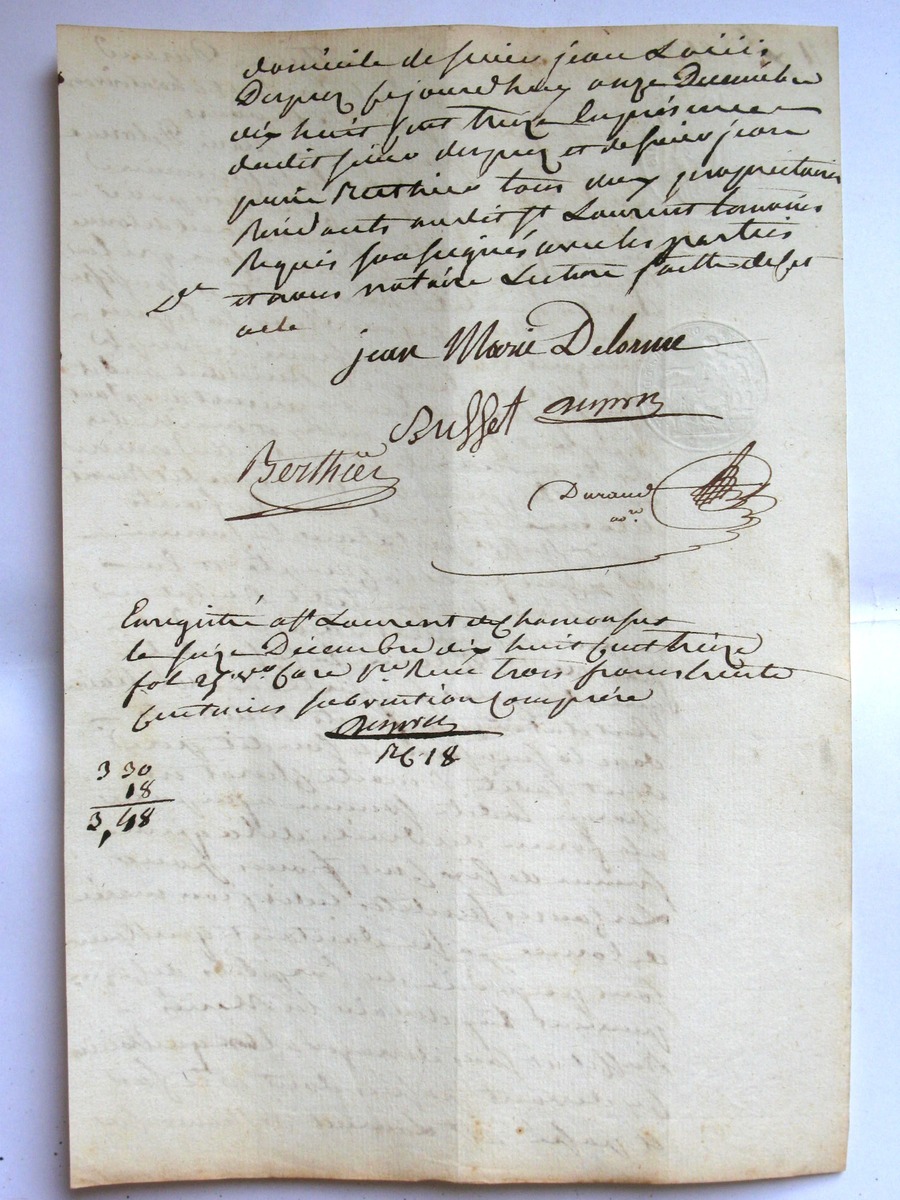 domicile de sieur jean Louis
Duprez ce jourd'huy onze Décembre
dix huit cent treize En présence
dudit sieur duprez et de sieur jean
pierre Berthier tous deux propriétaires
Résidants audit St Laurent témoins
Requis soussignés avec les parties
De et nous notaire Lecture faitte de cet
acte
jean Marie Delorme
Buffet Duprez
Berthier
Durand
nre
Enregistré a St Laurent de Chamousset
le seize Décembre dix huit cent treize
fol 25 vo Case 1re Reçu trois francs trente
Centimes subvention Comprise
Duprez
R 6.18
3 30
18
3,48